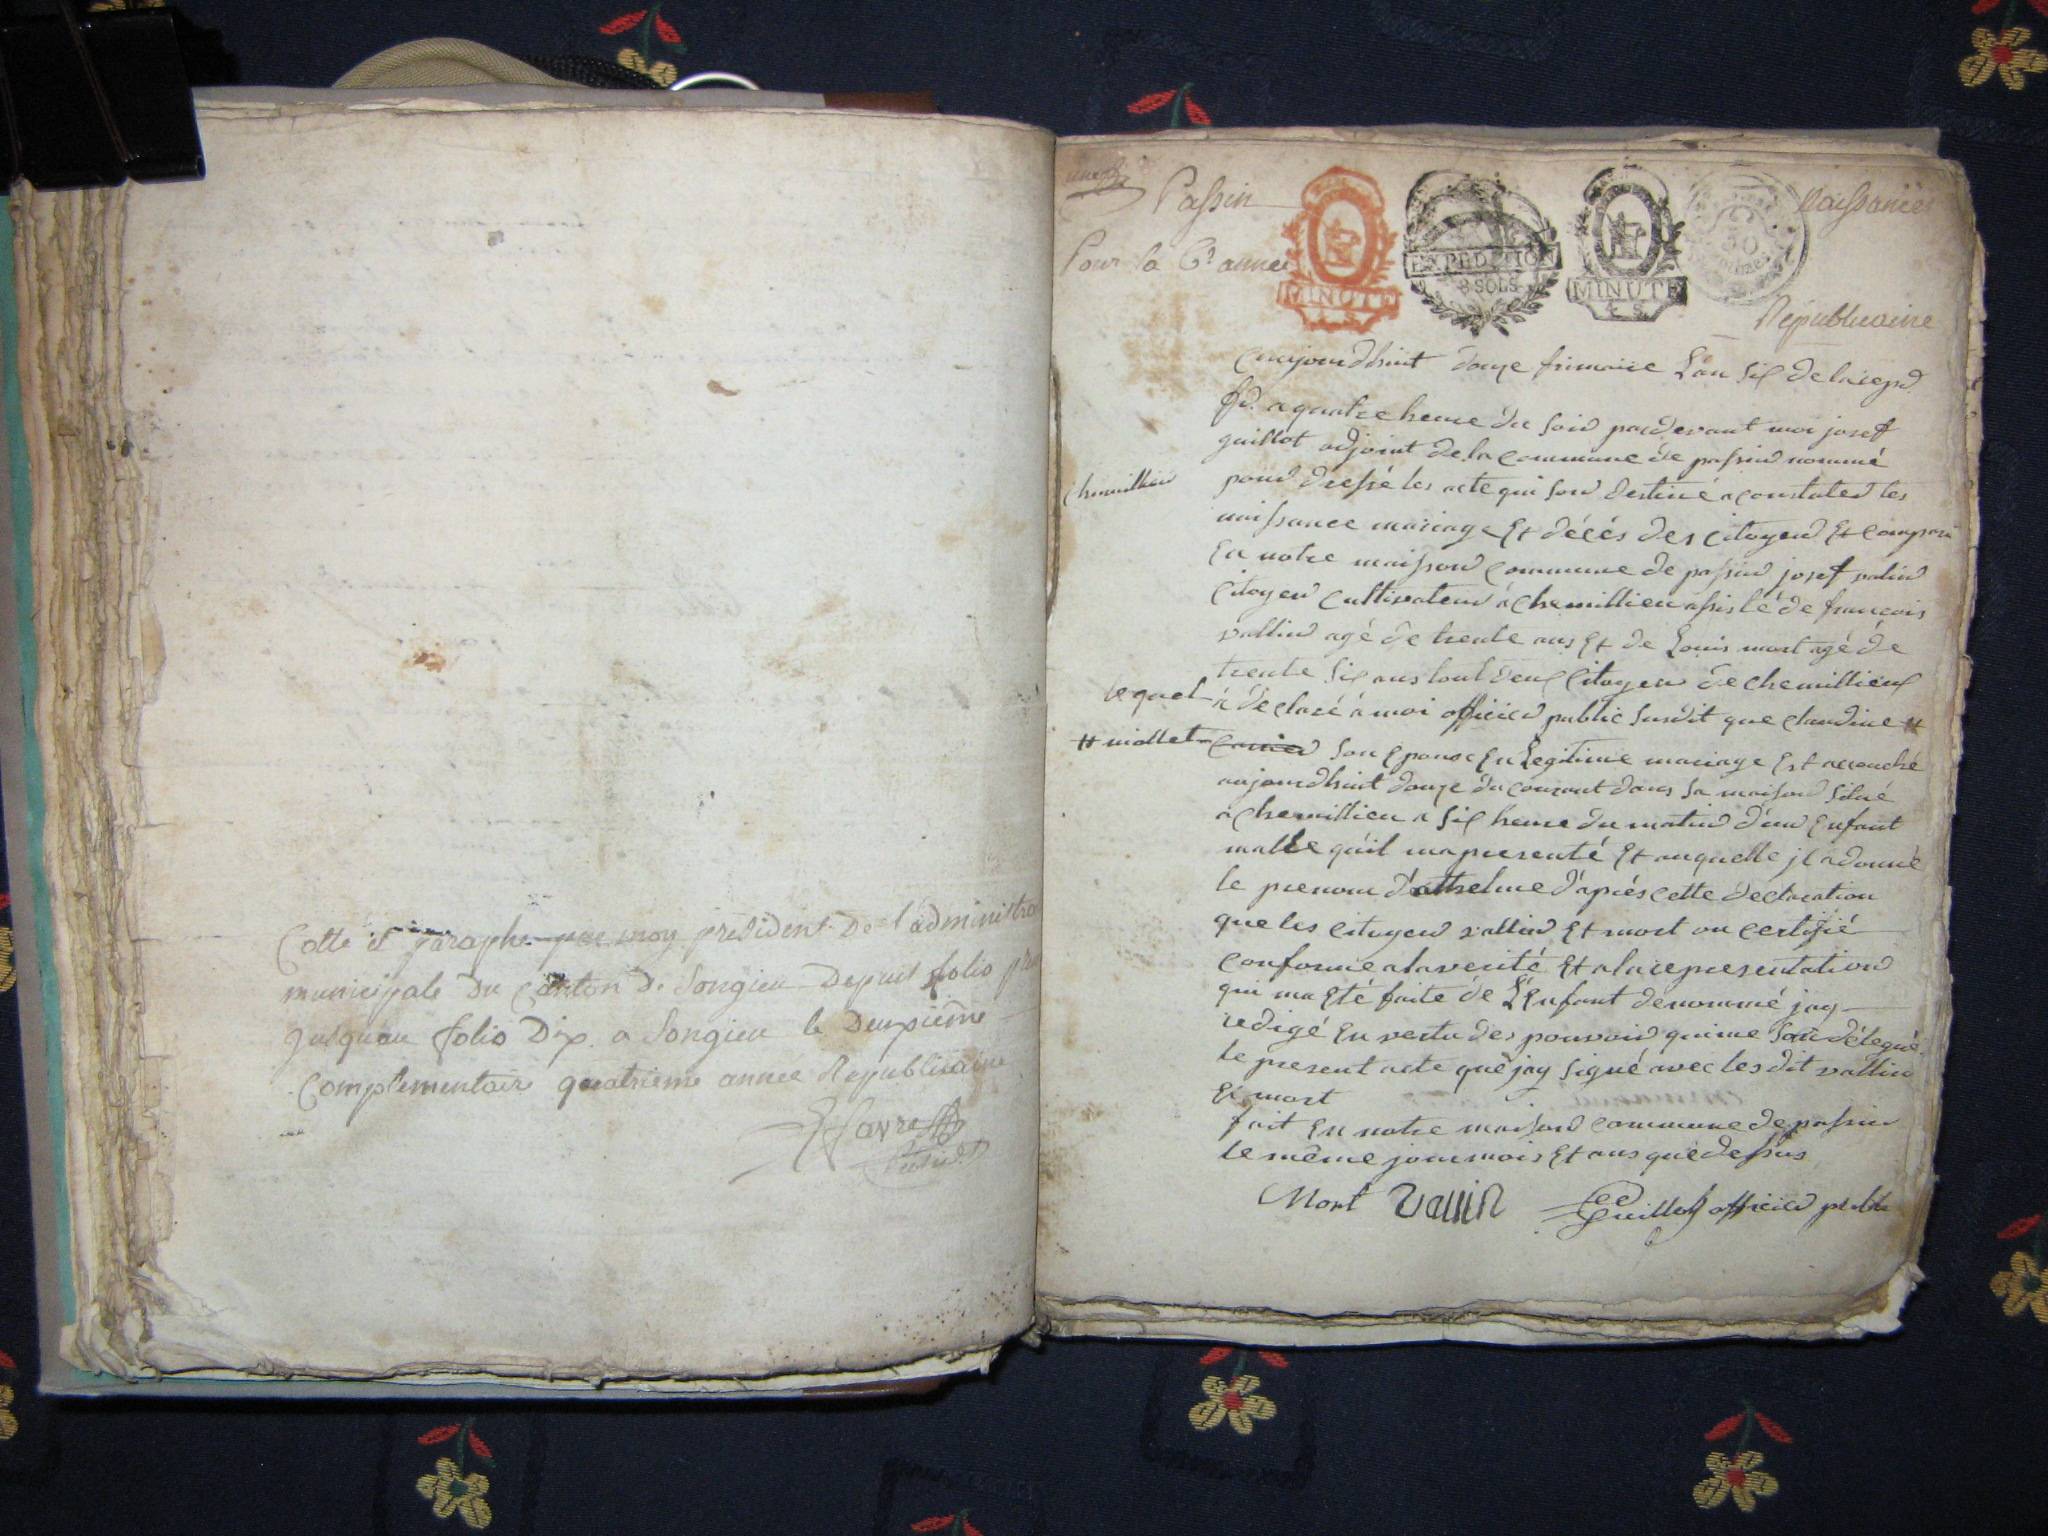 Cotte et paraphe par moy président De l'administra
municipale Du Canton De Songieu Depuis folio pre
Jusquau folio Dix. a Songieu le Deuxième
Complementaire quatrieme année Republicaine
Favre
Présid.t
Passin
Naissances
Pour la 6.e année
Républicaine
MINUTE
4 S
EXPEDITION
8 SOLS
MINUTE
4 S
50
aujourdhuit douze frimaire Lan six de la repd
fd. a quatre heure du soir pardevant moi josef
guillot adjoint de la commune de passin nommé
chemillieu
pour dressé les acte qui son destiné a constater les
naissance mariage Et décés des citoyen Et compari
En notre maison commune de passin josef valin
Citoyen cultivateur a chemillieu assisté de francois
vallin agé de trente ans Et de Louis mort agé de
trente six ans tout deux Citoyen de chemillieux
lequel a déclaré a moi officier public susdit que claudine #
# miollet son Epouse En Legitime mariage Est accouché
aujourdhuit douze du courant dans sa maison situé
a chemillieu a six heure du matin d'un Enfant
malle quil ma presenté Et auquelle jl a donné
le prenom d'anthelme d'aprés cette declaration
que les citoyen vallin Et mort on certifié
conforme a la verité Et a la representation
qui ma Eté faite de L'Enfant denommé jay
redigé En vertu des pouvoir qui me son délegué
le present acte que jay signé avec les dit vallin
Et mort
fait En notre maison commune de passin
le même jour mois Et ans que dessus
Mort Vallin Guillot officier public